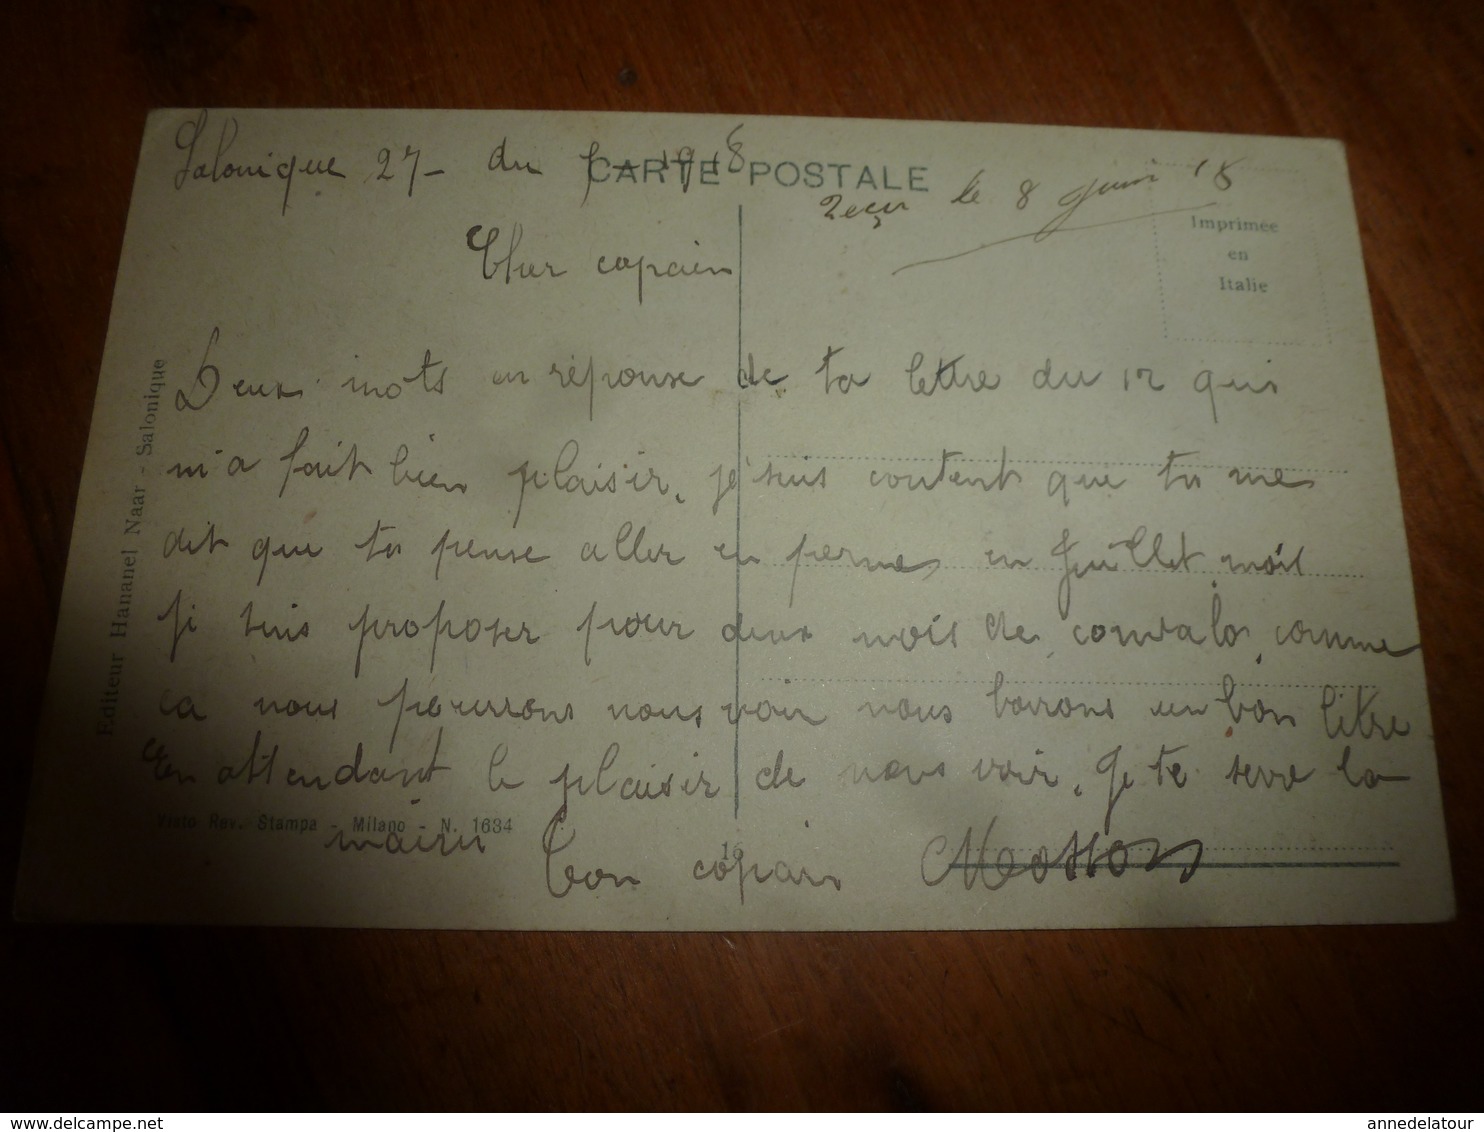 Salonique 27- du 1918
CARTE POSTALE
Reçu le 8 Juin 18
Imprimée
en
Italie
Cher copain
Deux mots en réponse de ta lettre du 12 qui
m'a fait bien plaisir, je suis content que tu me
dit que tu pense aller en perme en Juillet moi
je suis proposer pour deux mois de convalo, comme
ca nous pourrons nous voir nous boirons un bon litre
En attendant le plaisir de nous voir, Je te serre la
main Ton copain Mosson
Editeur Hananel Naar - Salonique
Visto Rev. Stampa - Milano - N. 1634
16
delcampe.net
annedelatour